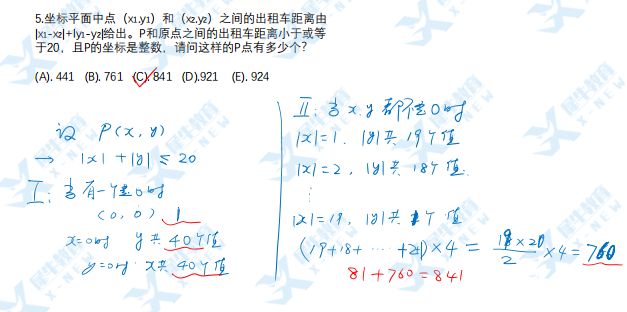 5.坐标平面中点（x₁,y₁）和（x₂,y₂）之间的出租车距离由
|x₁-x₂|+|y₁-y₂|给出。P和原点之间的出租车距离小于或等
于20，且P的坐标是整数，请问这样的P点有多少个?
(A). 441 (B). 761 (C). 841 (D).921 (E). 924
设 P(x, y)
→ |x| + |y| ≤ 20
I: 当有一个是0时
(0, 0) 1
x=0时 y共40个值
y=0时 x共40个值
II: 当x.y都不是0时
|x|=1, |y|共19个值
|x|=2, |y|共18个值.
⋮
|x|=19, |y|共1个值
(19+18+ ⋯ +1)×4 = 19×20/2 ×4 = 760
81+760=841
犀牛教育
X-NEW